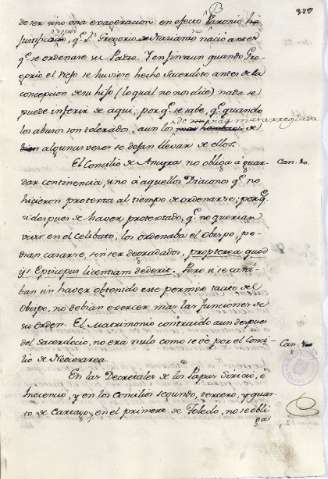 327
de ser una exageracion: en efecto Baronio ha
justificado, q.e S. Gregorio de Nacianzo nacio antes
q.e se ordenase su Padre. Y en fin aun quando Gre-
gorio el viejo se huviese hecho Sacerdote antes de la
concepcion de su hijo (lo qual no no dice) nada se
puede inferir de aqui, porq.e se sabe, q.e quando
los abusos son tolerados, aun los
bien algunas veces se dejan llevar de ellos.
El Concilio de Ancyra no obliga á guar- Can. 10.
dar continencia, sino á aquellos Diaconos q.e no
hicieron protesta al tiempo de ordenarse; porq.e
si despues de haver protestado, q.e no querian
vivir en el celibato, los ordenaba el obispo, po-
dian casarse, sin ser degradados, propterea quod
ijs Episcopus licentiam dederit. Pero si se casa-
ban sin haver obtenido este permiso tacito de el
Obispo, no debian exercer mas las funciones de
su orden. El matrimonio contraido aun despues
del Sacerdocio, no era nulo como se vé por el Conci- Can. 1.
lio de Neocesarea.
En las Decretales de los Papas Siricio, é
Inocencio, y en los Concilios segundo, tercero, y quar-
to de Cartago, en el primero de Toledo, no se obli-
ga